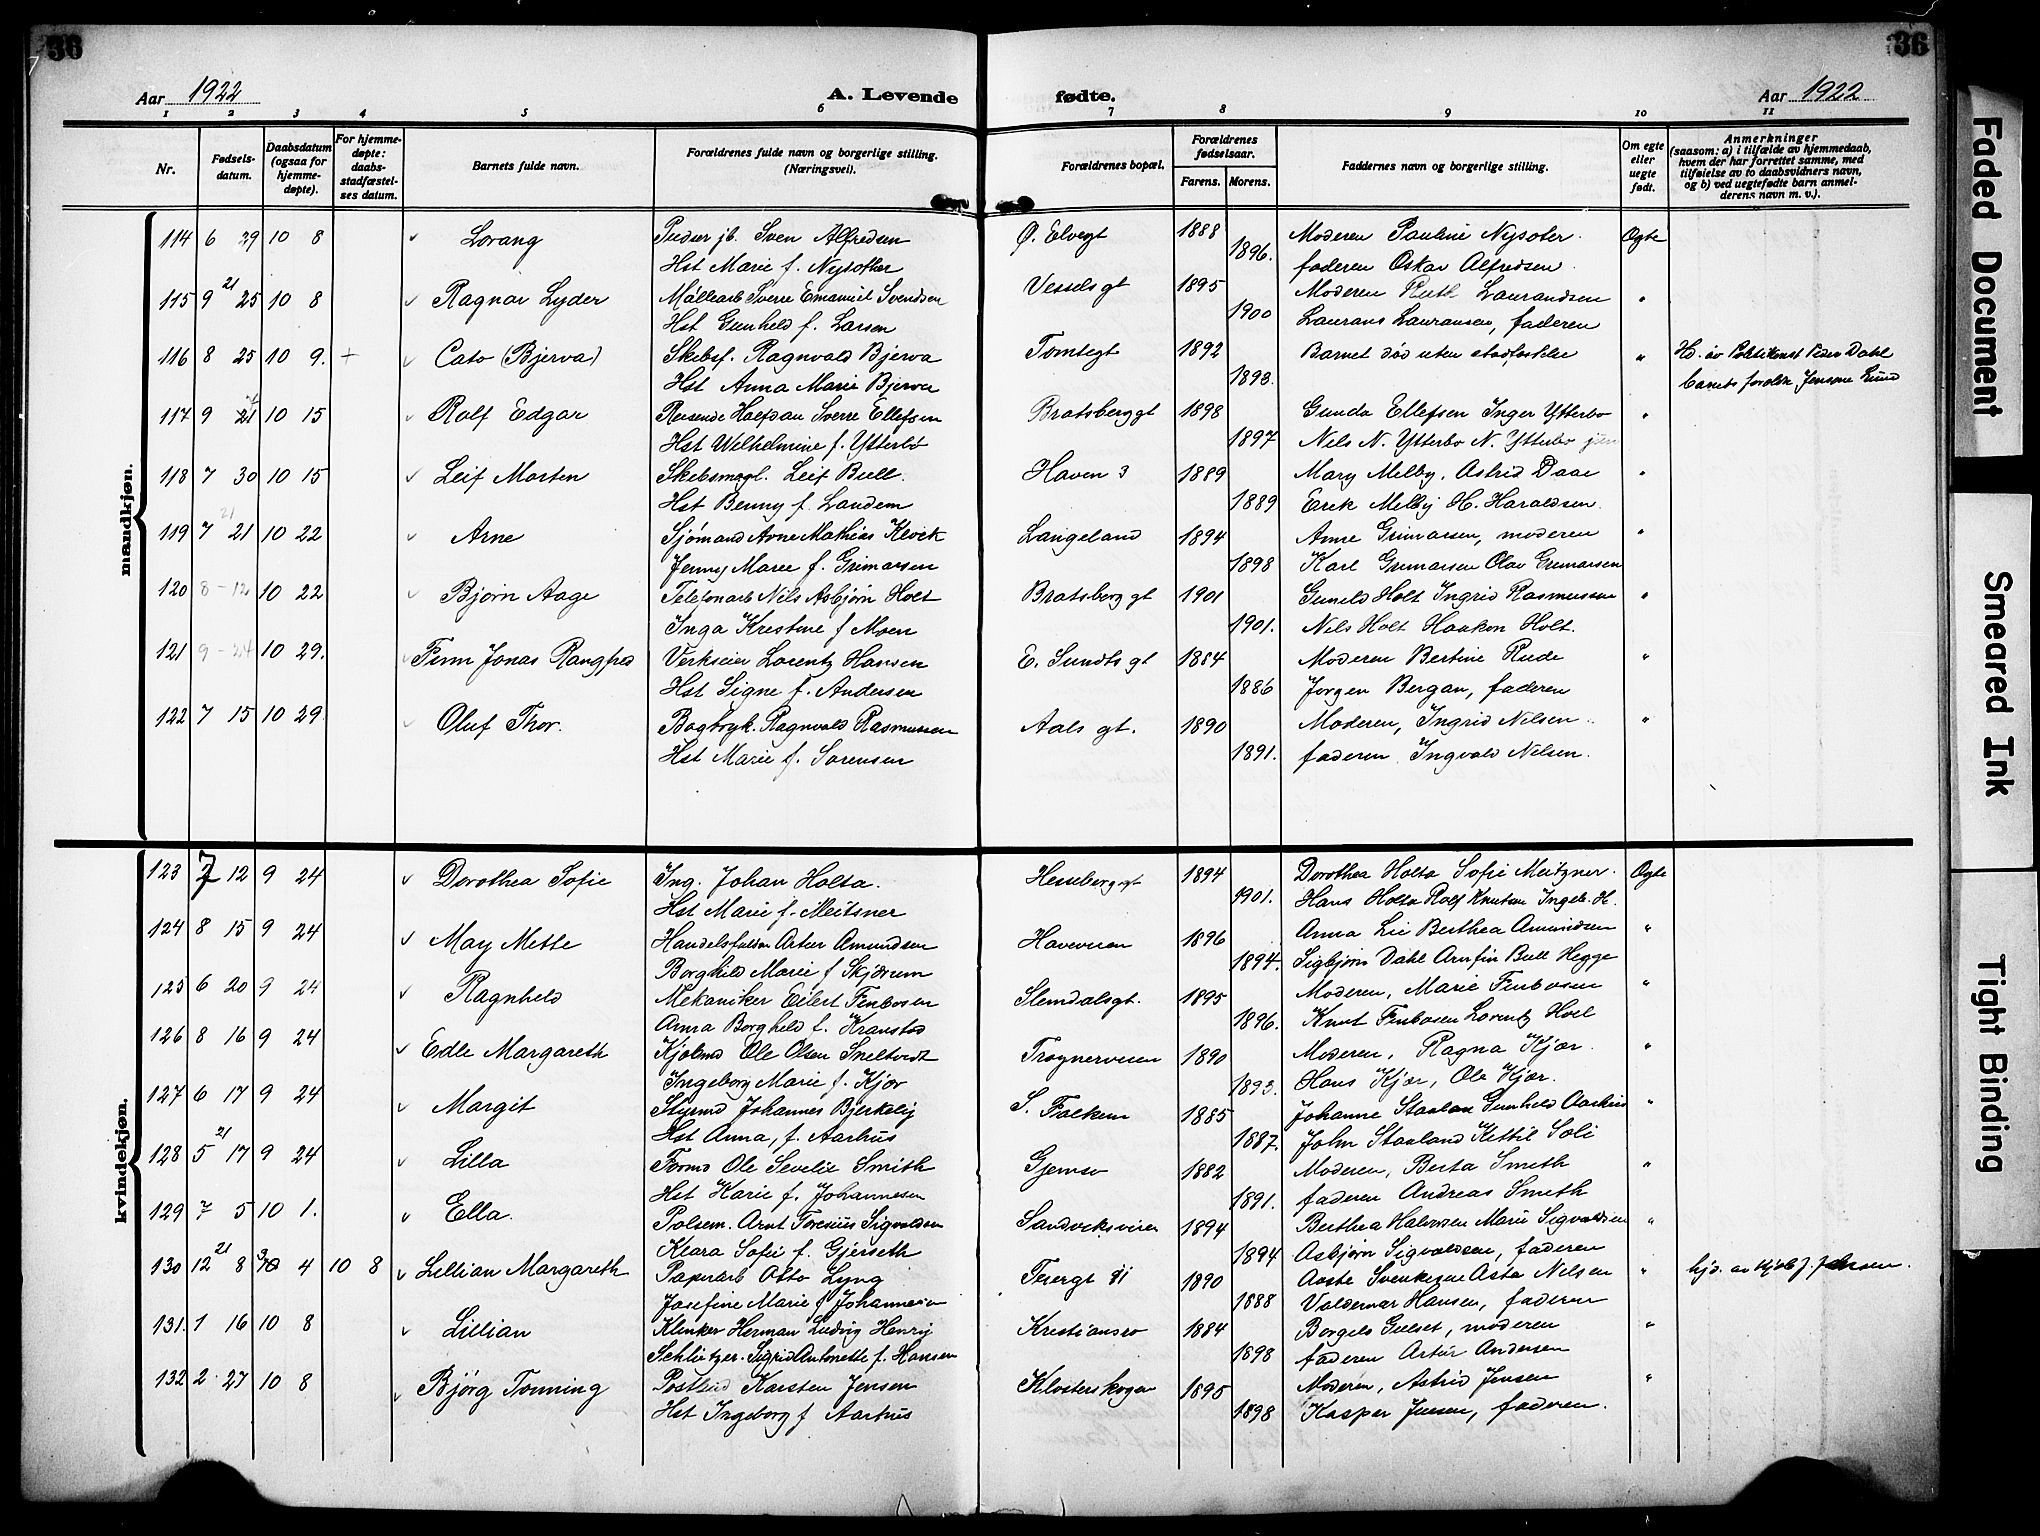 36
36
Aar 1922
A. Levende
fødte.
Aar 1922
1 2 3 4 5 6 7 8 9 10 11
Nr.
Fødsels-
datum.
Daabsdatum
(ogsaa for
hjemme-
døpte).
For hjemme-
døpte:
daabs-
stadfæstel-
ses datum.
Barnets fulde navn.
Forældrenes fulde navn og borgerlige stilling.
(Næringsvei).
Forældrenes bopæl.
Forældrenes
fødselsaar.
Farens. Morens.
Faddernes navn og borgerlige stilling.
Om egte
eller
uegte
født.
Anmerkninger
(saasom: a) i tilfælde av hjemmedaab,
hvem der har forrettet samme, med
tilføielse av to daabsvidners navn,
og b) ved uegtefødte barn anmel-
derens navn m. v.).
mandkjøn.
114 6 29 10 8 Lorang Pudser jb. Sven Alfredsen Ø. Elvegt 1888 Moderen Pauline Nysoter. Egte
Hst Marie f. Nysother 1896. faderen Oskar Alfredsen.
115 9 21 25 10 8 Ragnar Lyder Møllearb Sverre Emanuel Svendsen Vesselsgt 1895 Moderen Ruth Laurandsen "
Hst Gunhild f. Larsen 1900 Laurans Lauransen, faderen
116 8 25 10 9. + Cato (Bjerva) Skibsf. Ragnvald Bjerva Tomtegt 1892 Barnet død uten stadfæstelse " Hd. av Politikonst Peder Dahl
Hst Anna Marie Bjerva 1893. barnets foreldre, Lund
117 9 21 10 15 Rolf Edgar Reisende Halfdan Sverre Ellefsen Bratsberggt 1898 Gunda Ellefsen Inger Ytterbo "
Hst Wilhelmine f. Ytterbö 1897 Nils N. Ytterbo N. Ytterbo jun
118 7 30 10 15 Leif Morten Skibsmegl. Leif Bull. Haven 3 1889 Mary Melby, Astrid Daae "
Hst Benny f. Landem 1889 Erik Melby H. Haraldsen.
119 7 21 21 10 22 Arne Sjømand Arne Mathias Klock Langeland 1894 Anne Grimarsen, moderen "
Jenny Marie f. Grimarsen 1898 Karl Grimarsen Olav Grimarsen
120 8-12 10 22 Bjørn Aage Telefonarb Nils Asbjørn Holt Bratsberggt 1901 Gunild Holt Ingrid Rasmussen "
Inga Kristine f Moen 1901. Nils Holt Haakon Holt.
121 9-24 10 29. Finn Jonas Rangfred Verkseier Lorentz Hansen E. Sundts gt 1884 Moderen Bertine Rude "
Hst Signe f. Andersen 1886 Jørgen Bergan, faderen
122 7 15 10 29. Oluf Thor. Bogtryk. Ragnvald Rasmussen Aals gt. 1890 Moderen, Ingrid Nilsen. "
Hst Marie f. Sørensen 1891. faderen Ingvald Nilsen.
kvindekjøn.
123 7 12 9 24 Dorothea Sofie Ing. Johan Holta. Hesselberggt 1894 Dorothea Holta Sofie Meitzner. Egte
Hst Marie f. Meitsner 1901. Hans Holta Rolf Knutsen Ingeb. H.
124 8 15 9 24 May Mette Handelsfuldm Artur Amundsen Haveveien 1896 Anna Lie Berthea Amundsen "
Borghild Marie f Skjærum 1894. Sigbjørn Dahl Arnfin Bull Hegge
125 6 20 9 24 Ragnhild Mekaniker Eilert Finbosen Slemdalsgt. 1895 Moderen, Marie Finbosen "
Anna Borghild f. Kranstad 1896. Knut Finbosen Lorentz Hoel
126 8 16 9 24 Edle Margareth Kjøbmd Ole Olsen Sneltvedt Trognerveien 1890 Moderen, Ragna Kjær. "
Ingeborg Marie f. Kjær 1893. Hans Kjær, Ole Kjær.
127 6 17 9 24 Margit Styrmd Johannes Bjerkelij S. Falkum 1885 Johanne Staaland Gunhild Aarhus "
Hst Anna, f. Aarhus 1887. John Staaland Kittil Soli
128 5 21 17 9 24 Lilla Formd Ole Sevelie Smith Gjemsø 1882 Moderen, Berta Smith "
Hst Karie f. Johannesen 1891. faderen Andreas Smith
129 7 5 10 1. Ella. Polsem. Arnt Toresius Sigvaldsen Sandviksveien 1894 Berthea Halvorsen Marie Sigvaldsen "
Klara Sofie f. Gjerseth 1894 Asbjørn Sigvaldsen, faderen
130 12 21 8 4 10 8 Lillian Margareth Papirarb Otto Lyng Teiergt 11 1890 Aaste Svenkesen Asta Nilsen " hjd. av Johnsen.
Josefine Marie f Johannesen 1888 Valdemar Hansen, faderen
131. 1 16 10 8 Lillian Klinker Herman Ludvig Henry Kristiansø 1884 Borgels Gulset, moderen "
Schlytzer. Sigrid Antonette f. Hansen 1898 faderen Artur Andersen
132 2 27 10 8 Bjørg Tonning Postbud Karsten Jensen Klosterskogen 1895 Moderen, Astrid Jensen "
Hst Ingeborg f Aarhus 1898 Kasper Jensen, faderen.
Faded Document
Smeared Ink
Tight Binding